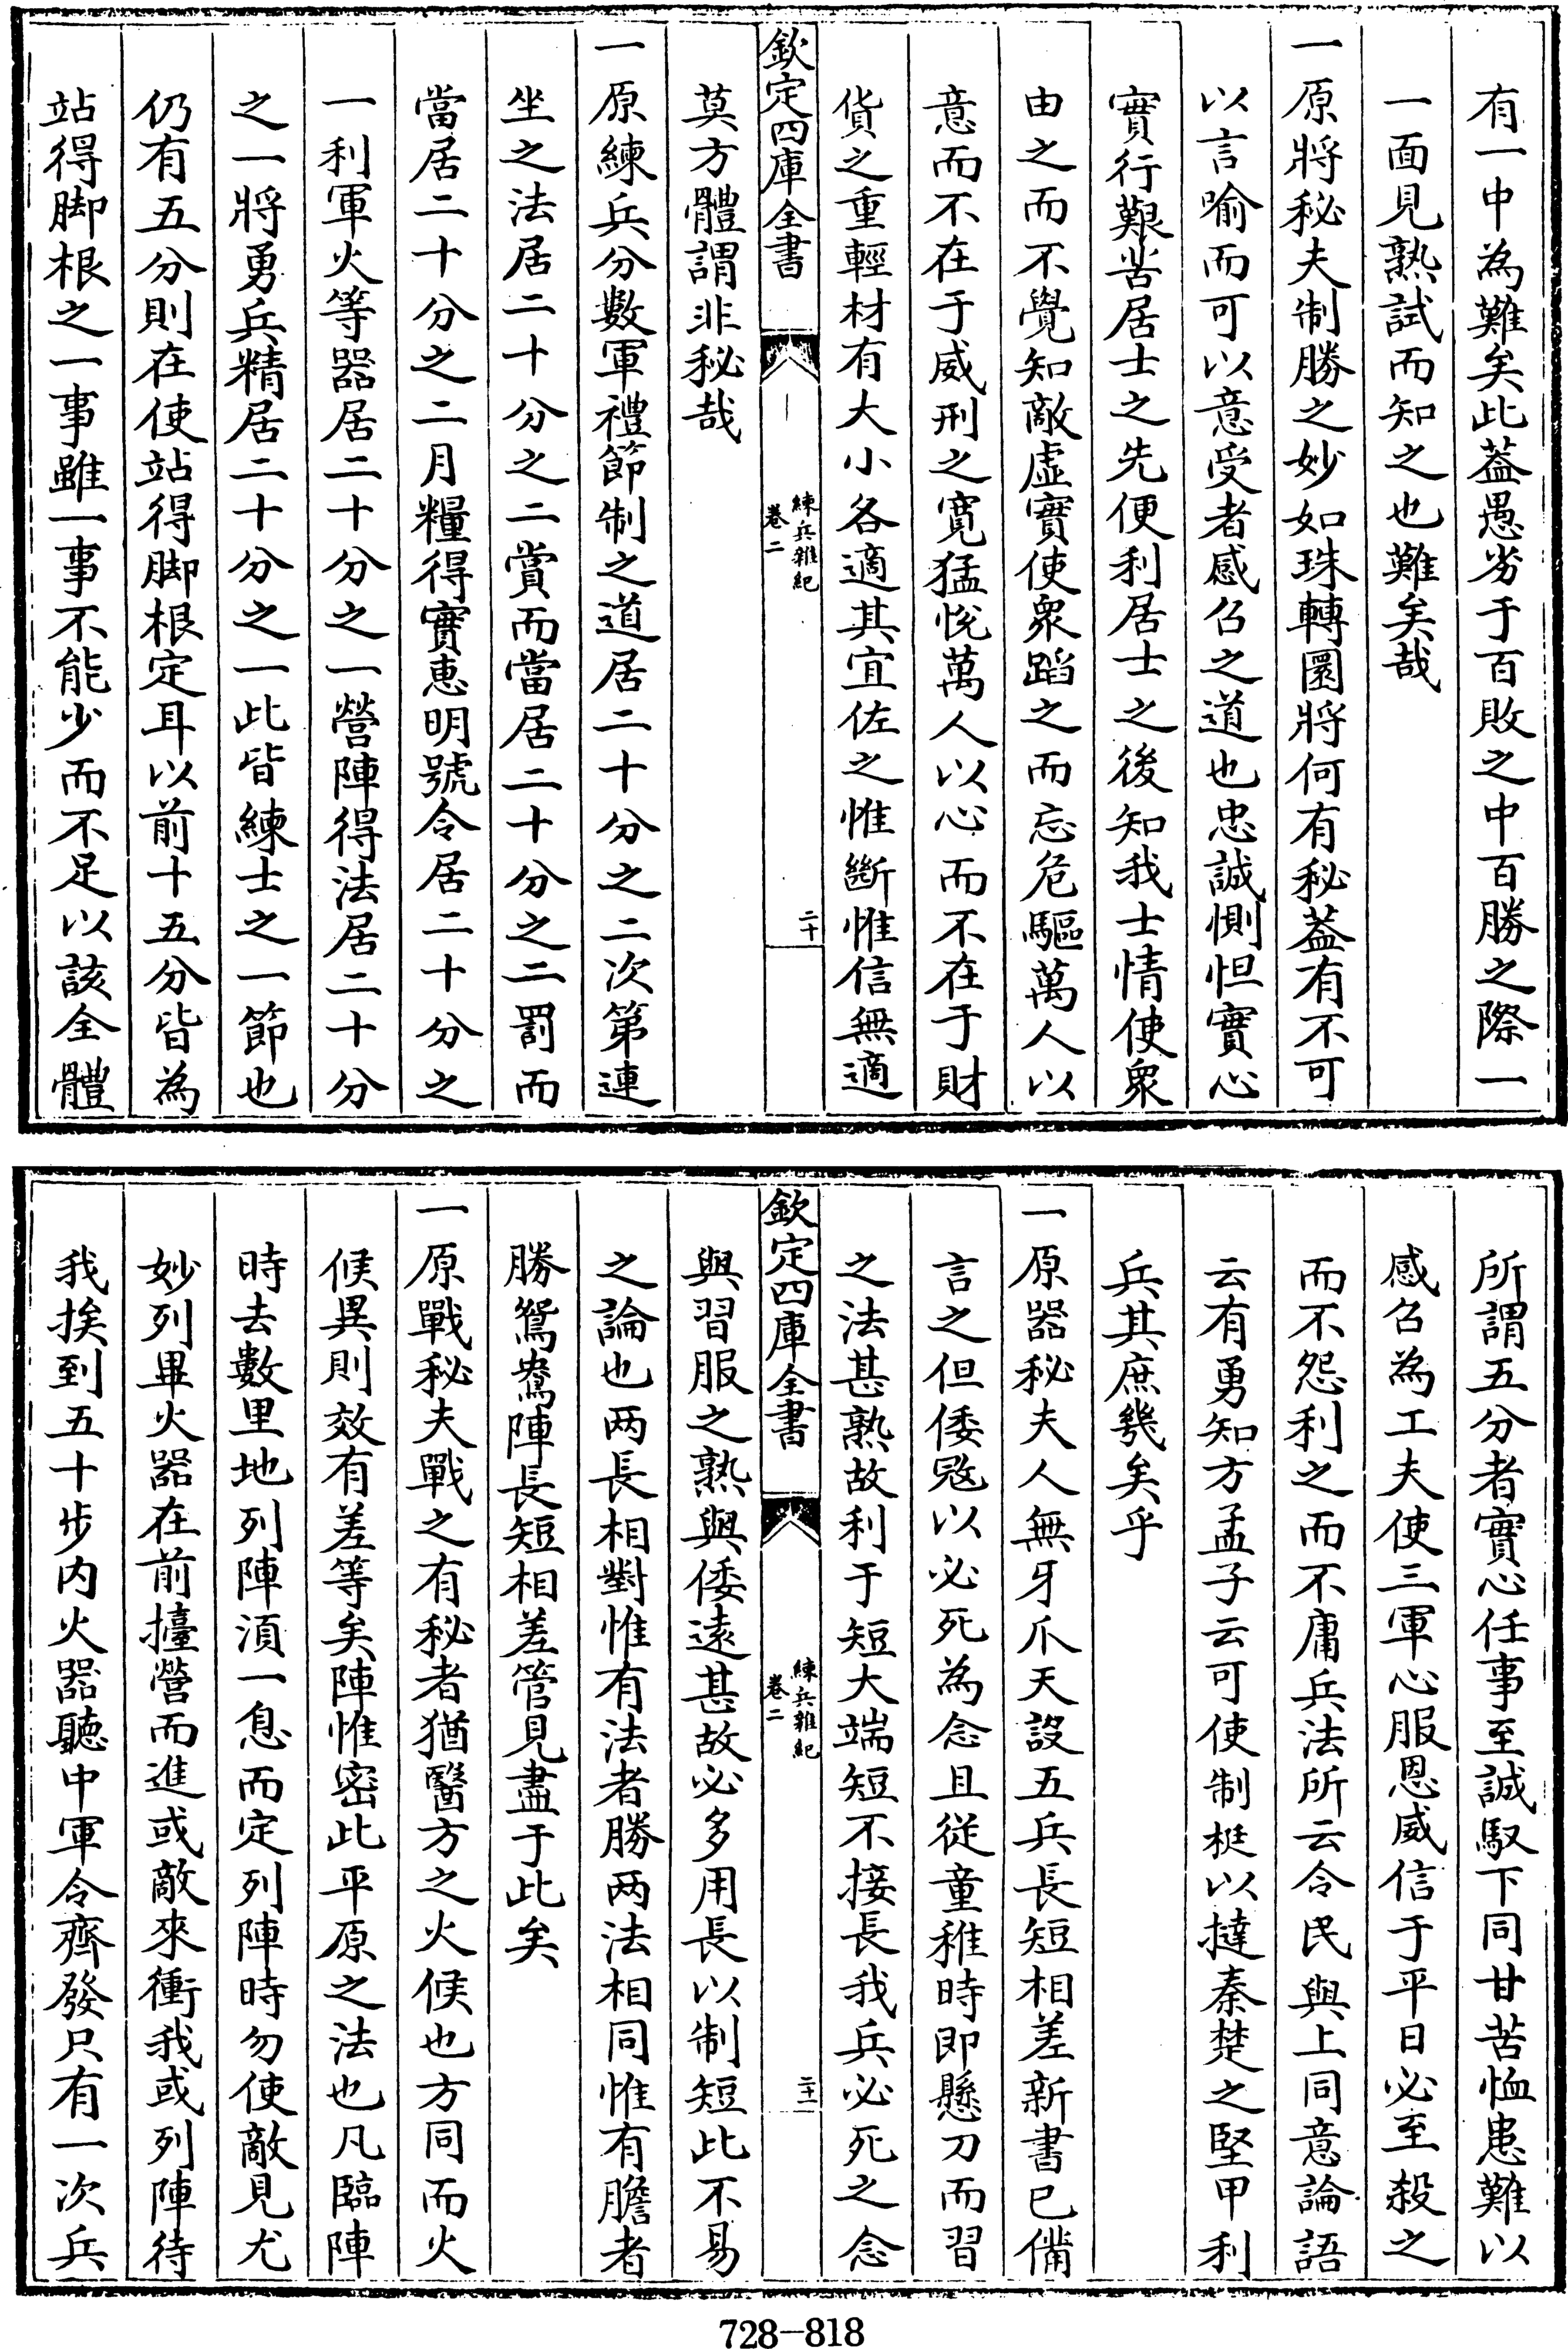 有一中為難矣此蓋愚劣于百敗之中百勝之際一
一面見熟試而知之也難矣哉
一原將秘夫制勝之妙如珠轉圜將何有秘蓋有不可
以言喻而可以意受者感召之道也忠誠惻怛實心
實行艱苦居士之先便利居士之後知我士情使衆
由之而不覺知敵虛實使衆蹈之而忘危驅萬人以
意而不在于威刑之寬猛悅萬人以心而不在于財
貨之重輕材有大小各適其宜佐之惟斷惟信無適
欽定四庫全書
練兵雜紀
卷二
二十
莫方體謂非秘哉
一原練兵分數軍禮節制之道居二十分之二次第連
坐之法居二十分之二賞而當居二十分之二罰而
當居二十分之二月糧得實惠明號令居二十分之
一利軍火等器居二十分之一營陣得法居二十分
之一將勇兵精居二十分之一此皆練士之一節也
仍有五分則在使站得脚根定耳以前十五分皆為
站得脚根之一事雖一事不能少而不足以該全體
所謂五分者實心任事至誠馭下同甘苦恤患難以
感召為工夫使三軍心服恩威信于平日必至殺之
而不怨利之而不庸兵法所云令民與上同意論語
云有勇知方孟子云可使制梃以撻秦楚之堅甲利
兵其庶幾矣乎
一原器秘夫人無牙爪天設五兵長短相差新書已備
言之但倭寇以必死為念且從童稚時即懸刀而習
之法甚熟故利于短大端短不接長我兵必死之念
欽定四庫全書
練兵雜紀
卷二
二十一
與習服之熟與倭遠甚故必多用長以制短此不易
之論也两長相對惟有法者勝两法相同惟有膽者
勝鴛鴦陣長短相差管見盡于此矣
一原戰秘夫戰之有秘者猶醫方之火候也方同而火
候異則效有差等矣陣惟密此平原之法也凡臨陣
時去數里地列陣須一息而定列陣時勿使敵見尤
妙列畢火器在前擡營而進或敵來衝我或列陣待
我挨到五十步内火器聽中軍令齊發只有一次兵
728-818